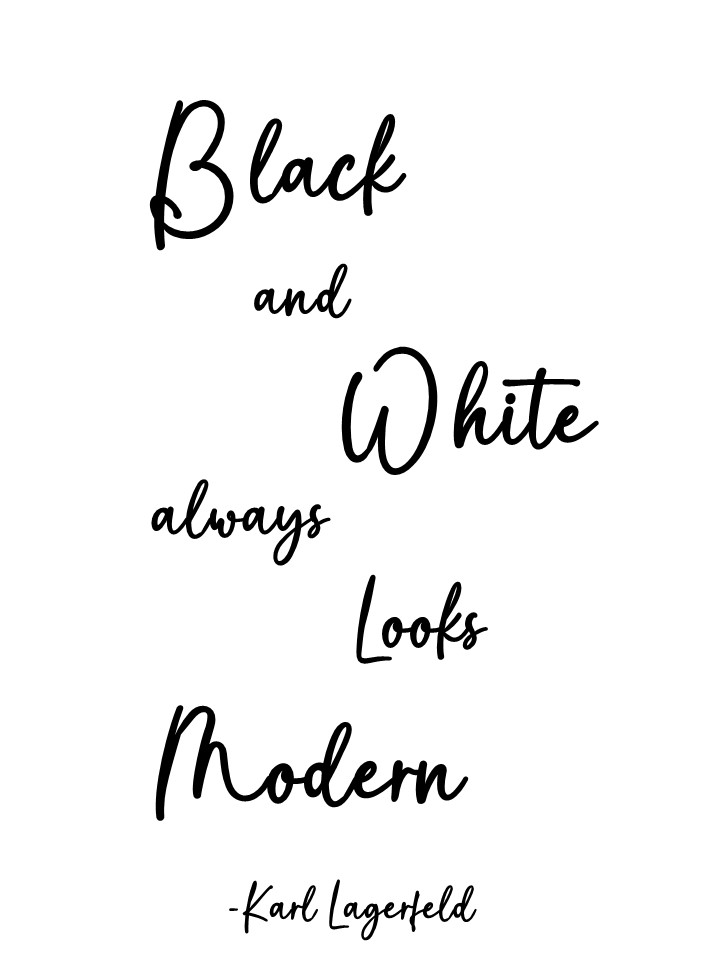 Black
and
White
always
Looks
Modern
-Karl Lagerfeld